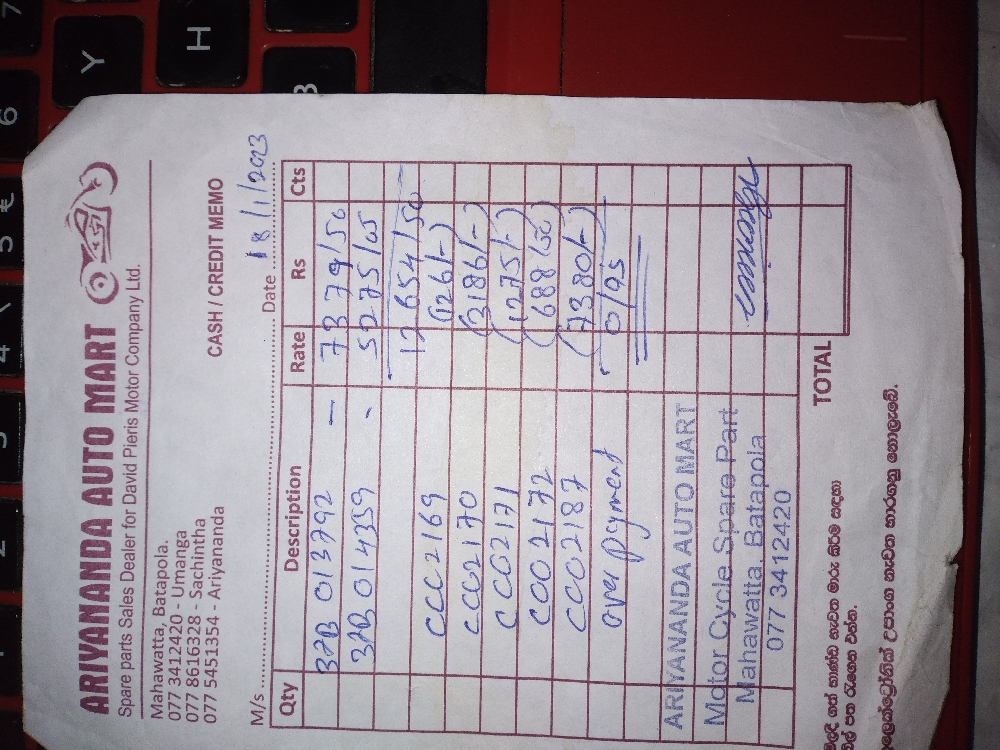 ARIYANANDA AUTO MART
Spare parts Sales Dealer for David Pieris Motor Company Ltd.
Mahawatta, Batapola.
077 3412420 - Umanga
077 8616328 - Sachintha
077 5451354 - Ariyananda
CASH / CREDIT MEMO
M/s Date 18/1/2023
Qty Description Rate Rs Cts
32B 013792 — 7379/50
32B 014359 - 5275/05
12654/50
CCC2169 (126/-)
CCC2170 (2186/-)
CCO2171 (1275/-)
CCO2172 (688/50)
CCO2187 (7380/-)
over payment 0/95
ARIYANANDA AUTO MART
Motor Cycle Spare Part
Mahawatta, Batapola
077 3412420
TOTAL
ගත් භාණ්ඩ නැවත මාරු කිරීම සඳහා
බිල් පත රැගෙන එන්න.
ඉලෙක්ට්‍රොනික් උපාංග නැවත භාරගනු නොලැබේ.